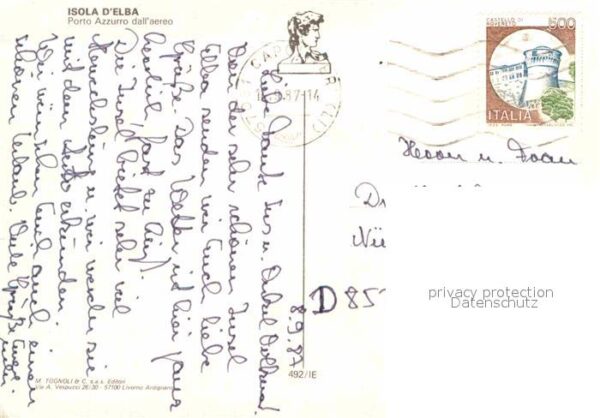 ISOLA D'ELBA
Porto Azzurro dall'aereo
8.9.87
Liebe Tante Ius u. Onkel
Von der sehr schönen Insel
Elba senden wir Euch liebe
Grüße. Das Wetter ist hier ganz
herrlich, fast zu heiß.
Die Insel bietet sehr viel
Abwechslung u. wir werden sie
mit dem Auto erkunden.
Wir wünschen Euch auch einen
schönen Urlaub. Viele Grüße Eure
M. TOGNOLI & C. s.a.s. Editori
Via A. Vespucci 26/30 - 57100 Livorno
492/IE
87-14
CASTELLO DI
ROVERETO
500
ITALIA
Herrn u. Frau
D 85
privacy protection
Datenschutz